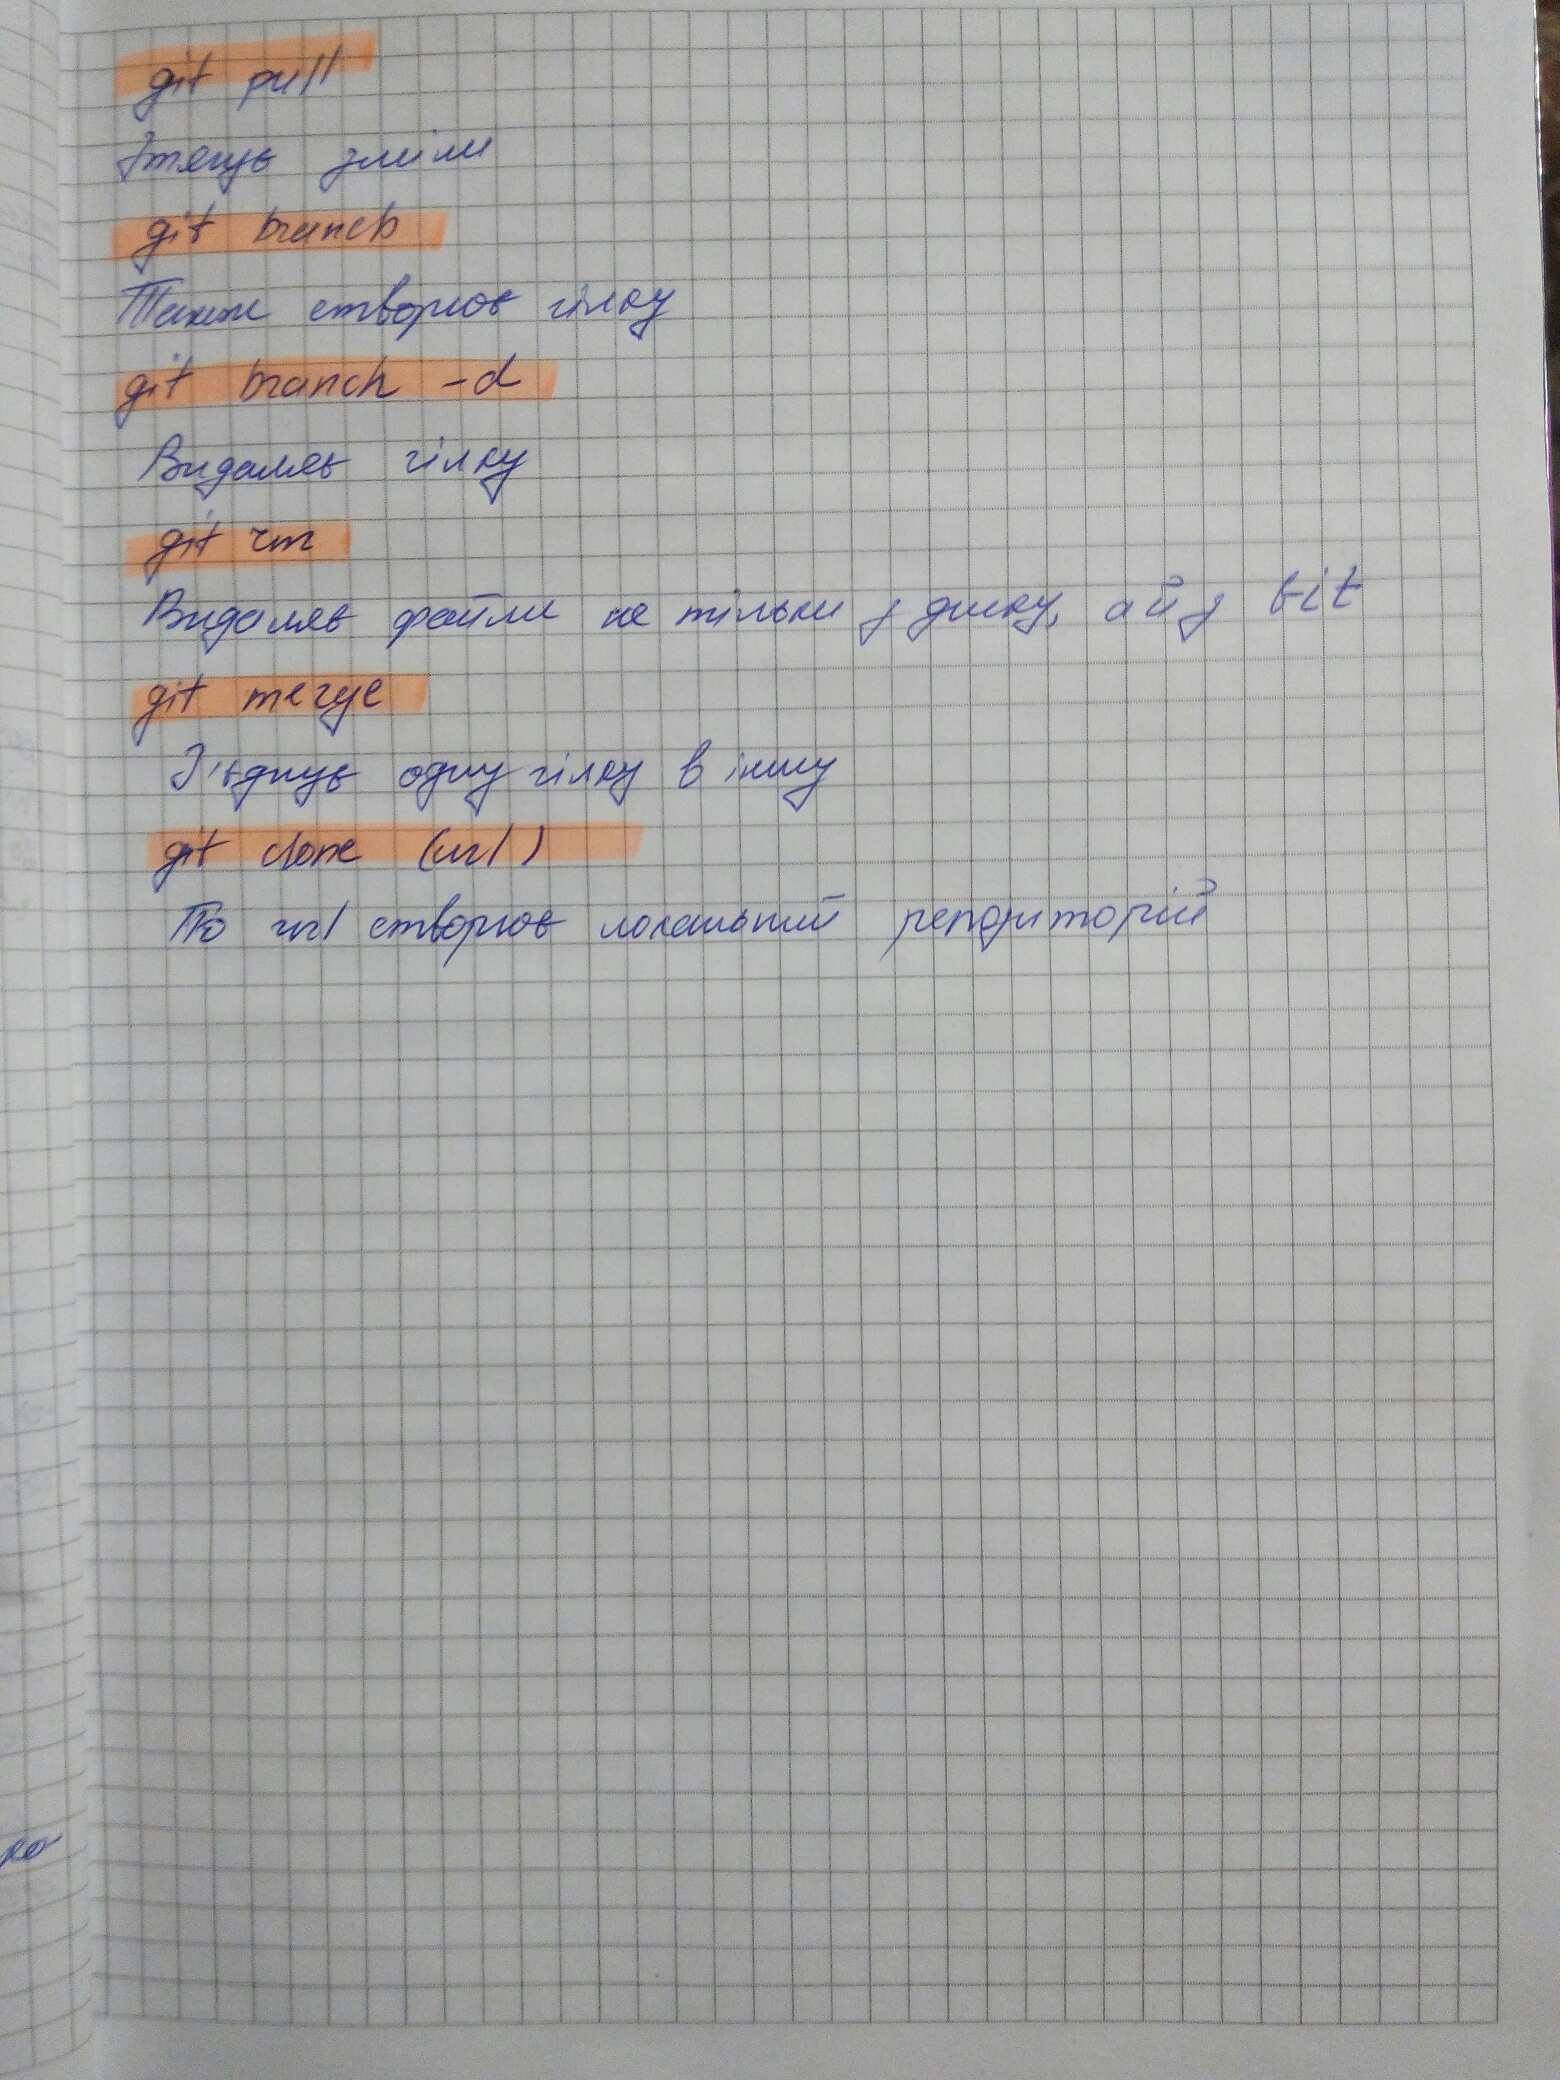 git pull
Зтягує зміни
git branch
Також створює гілку
git branch -d
Видаляє гілку
git rm
Видаляє файли не тільки з диску, а й з Git
git merge
З'єднує одну гілку в іншу
git clone (url)
По url створює локальний репозиторій
ко